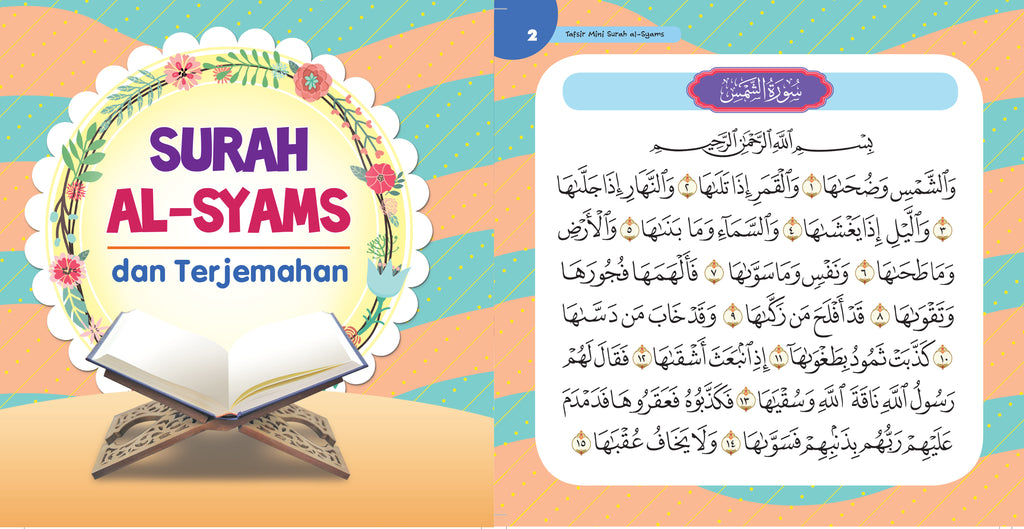 SURAH
AL-SYAMS
dan Terjemahan
2
Tafsir Mini Surah al-Syams
سُورَةُ الشَّمْسِ
بِسْمِ ٱللَّهِ ٱلرَّحْمَٰنِ ٱلرَّحِيمِ
وَٱلشَّمْسِ وَضُحَىٰهَا ١ وَٱلْقَمَرِ إِذَا تَلَىٰهَا ٢ وَٱلنَّهَارِ إِذَا جَلَّىٰهَا
٣ وَٱلَّيْلِ إِذَا يَغْشَىٰهَا ٤ وَٱلسَّمَآءِ وَمَا بَنَىٰهَا ٥ وَٱلْأَرْضِ
وَمَا طَحَىٰهَا ٦ وَنَفْسٍ وَمَا سَوَّىٰهَا ٧ فَأَلْهَمَهَا فُجُورَهَا
وَتَقْوَىٰهَا ٨ قَدْ أَفْلَحَ مَن زَكَّىٰهَا ٩ وَقَدْ خَابَ مَن دَسَّىٰهَا
١٠ كَذَّبَتْ ثَمُودُ بِطَغْوَىٰهَآ ١١ إِذِ ٱنۢبَعَثَ أَشْقَىٰهَا ١٢ فَقَالَ لَهُمْ
رَسُولُ ٱللَّهِ نَاقَةَ ٱللَّهِ وَسُقْيَٰهَا ١٣ فَكَذَّبُوهُ فَعَقَرُوهَا فَدَمْدَمَ
عَلَيْهِمْ رَبُّهُم بِذَنۢبِهِمْ فَسَوَّىٰهَا ١٤ وَلَا يَخَافُ عُقْبَٰهَا ١٥